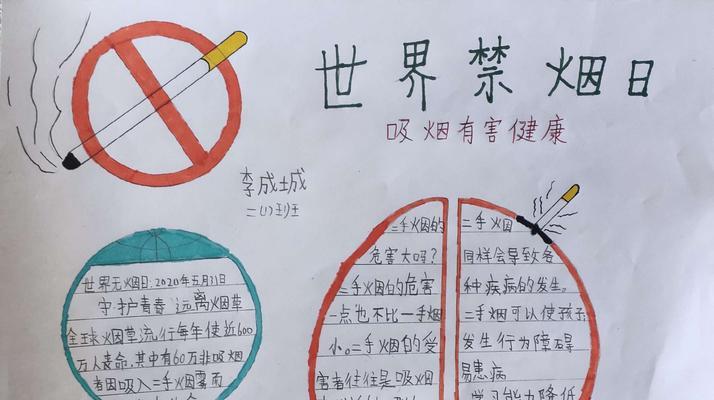 世界禁烟日
吸烟有害健康
李成城
二(1)班
世界无烟日:2020年五月31日
守护青春 远离烟草
全球烟草流行每年使近600
万人丧命,其中有60万非吸烟
者因吸入二手烟雾而
二手烟的
危害大吗?
二手烟的危害
一点也不比一手烟
小。二手烟的受
害者往往是吸烟
二手烟
同样会导致各
种疾病的发生。
二手烟可以使孩子
发生行为障碍
易患病
学习能力降低